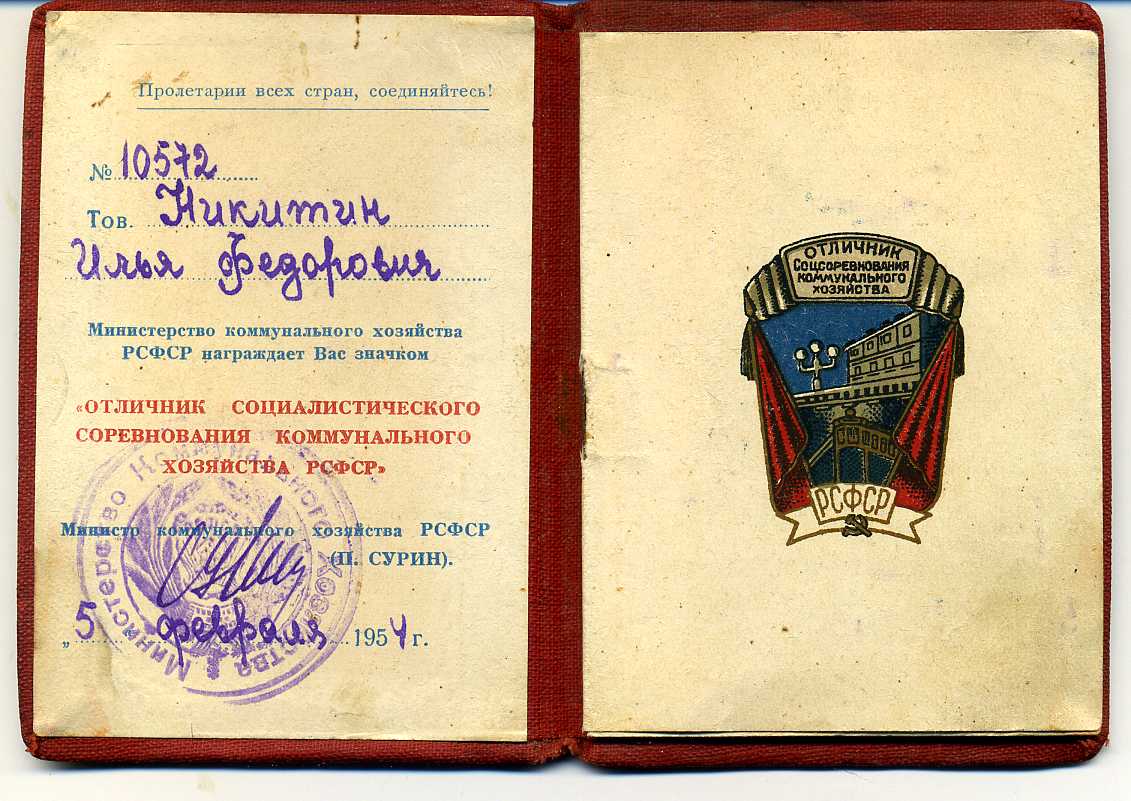 Пролетарии всех стран, соединяйтесь!
№ 10572
Тов. Никитин
Илья Федорович
Министерство коммунального хозяйства
РСФСР награждает Вас значком
«ОТЛИЧНИК СОЦИАЛИСТИЧЕСКОГО
СОРЕВНОВАНИЯ КОММУНАЛЬНОГО
ХОЗЯЙСТВА РСФСР»
Министр коммунального хозяйства РСФСР
(П. СУРИН).
„5 февраля 1954 г.
Министерство Коммунального Хозяйства
ОТЛИЧНИК
СОЦСОРЕВНОВАНИЯ
КОММУНАЛЬНОГО
ХОЗЯЙСТВА
РСФСР